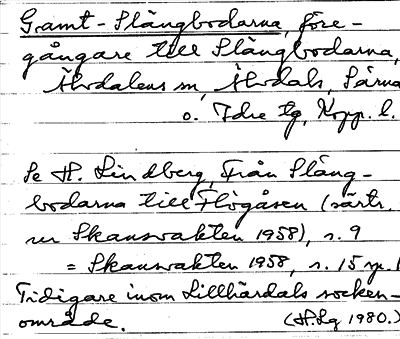 Gamt-Slängbodarna, före-
gångare till Slängbodarna,
Älvdalens sn, Älvdals, Särna
o. Idre tg, Kopp. l.
Se H. Lindberg, Från Släng-
bodarna till Flögåsen (särtr.
ur Skansvakten 1958), s. 9
= Skansvakten 1958, s. 15 sp. 1
Tidigare inom Lillhärdals socken-
område. (H.Lg 1980.)